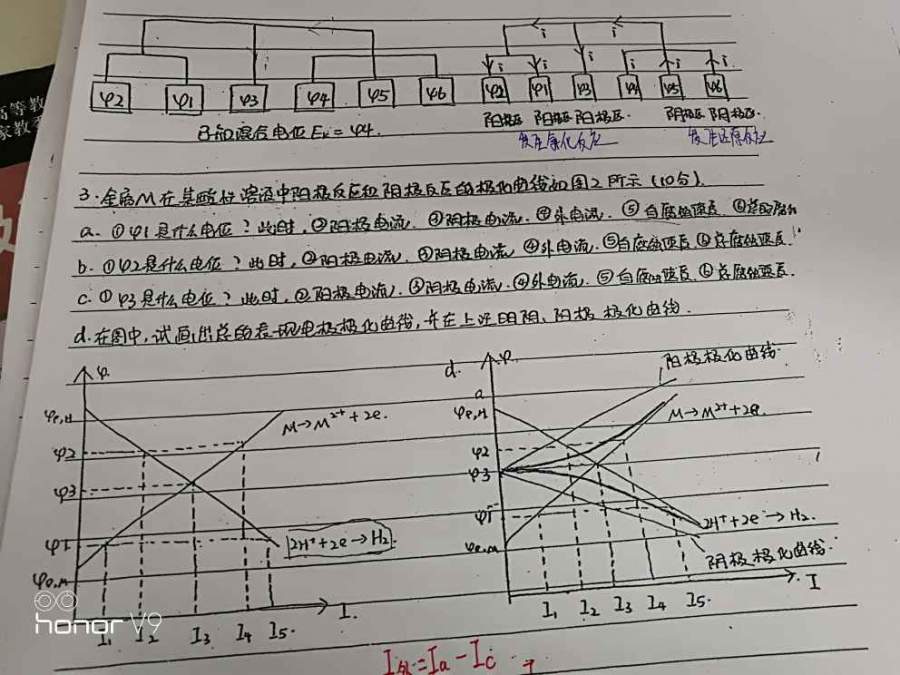 i i
i i i i i i
φ2 φ1 φ3 φ4 φ5 φ6 φ2 φ1 φ3 φ4 φ5 φ6
已知混合电位Ek=φ4. 阳极区 阳极区 阳极区. 阴极区 阴极区.
发生氧化反应 发生还原反应
3.金属M在某酸性溶液中阳极反应和阴极反应的极化曲线如图2所示(10分).
a. ①φ1是什么电位?此时,②阳极电流.③阴极电流.④外电流.⑤自腐蚀速度.⑥总腐蚀
b. ①φ2是什么电位?此时,②阳极电流.③阴极电流④外电流.⑤自腐蚀速度⑥总腐蚀速度.
c. ①φ3是什么电位?此时,②阳极电流.③阴极电流.④外电流.⑤自腐蚀速度⑥总腐蚀速度.
d.在图中,试画出总的表现电极极化曲线,并在上注明阴、阳极极化曲线.
φ.
φe,H
M→M²⁺+2e.
φ2
φ3
φ1
2H⁺+2e→H₂.
φe,M
I₁ I₂ I₃ I₄ I₅. I.
d.
φ.
阳极极化曲线.
a
φe,H
M→M²⁺+2e.
φ2
φ3
φ1
2H⁺+2e→H₂.
φe,M
阴极极化曲线.
I
I₁ I₂ I₃ I₄ I₅.
honor V9
I外=Ia-Ic